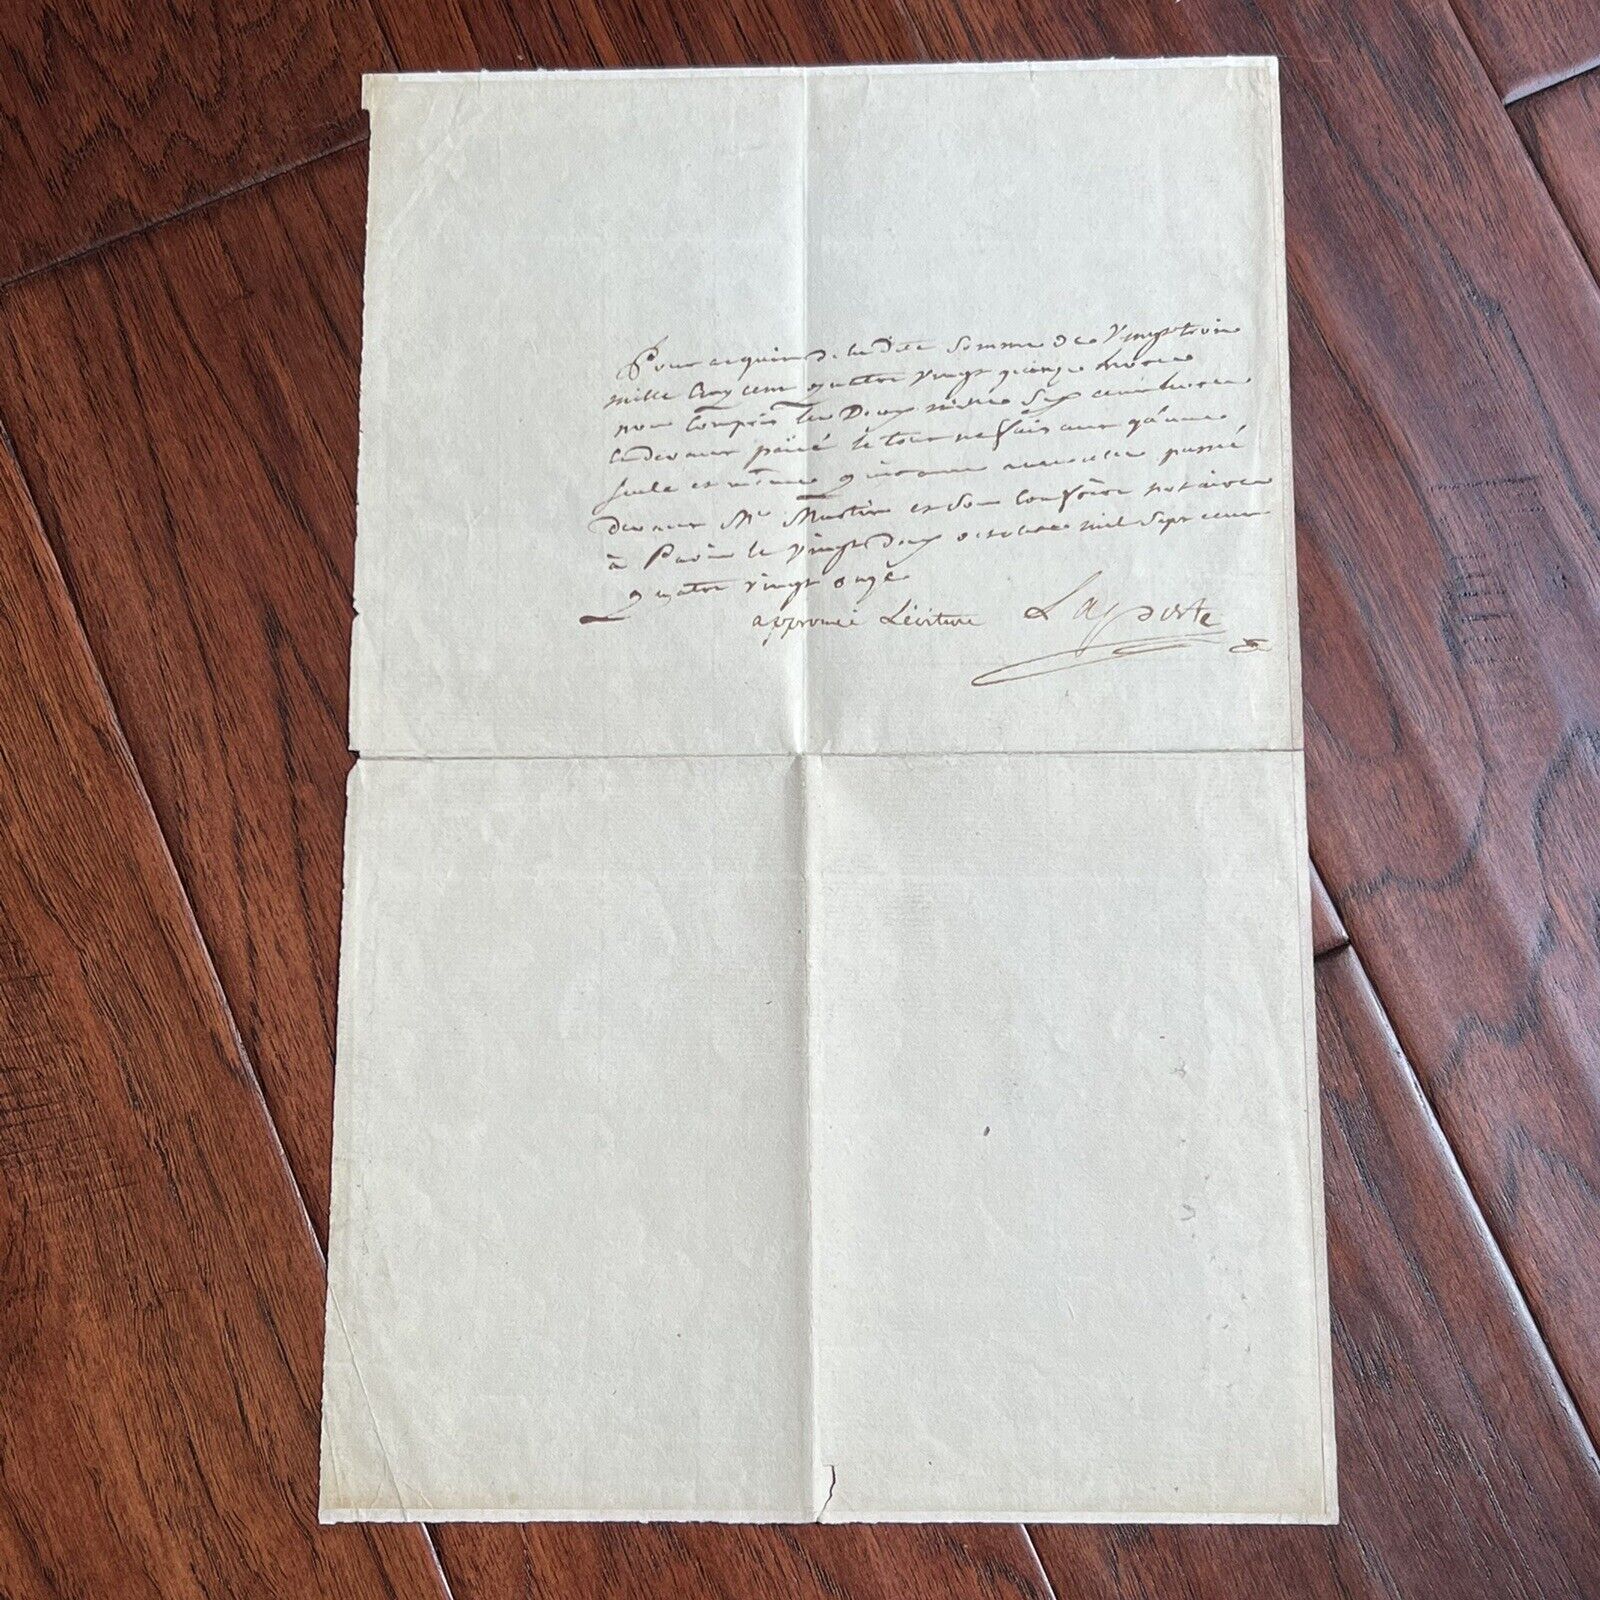 Pour acquit de la dite somme de Vingt trois
mille Cinq cent quatre vingt quinze livres
non Compris les Deux mille Six cent livres
cy devant païé le tout ne faisant qu'une
seule et même quittance avec celle passé
devant Me Martin et son Confrère notaires
à Paris le Vingt Deux octobre mil Sept cent
quatre vingt onze
approuvé L'écriture Laporte